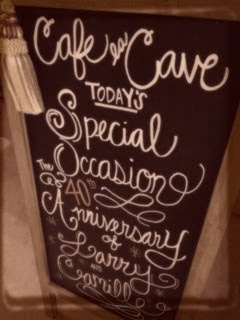 Cafe la Cave
TODAY'S
Special
Occasion
The
40th
Anniversary
of
Larry
AND
Camille